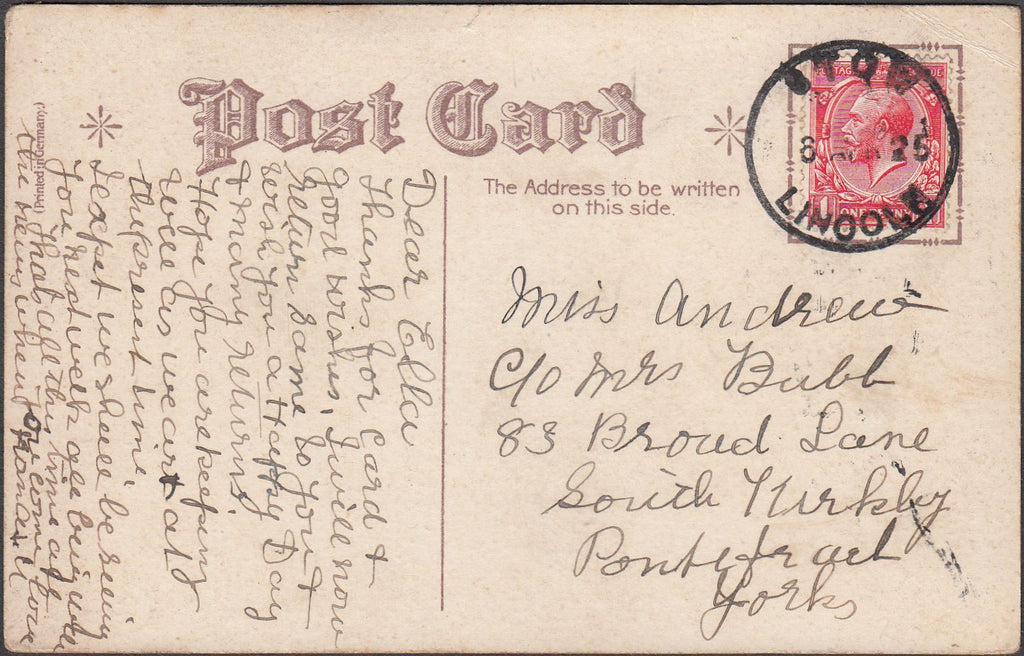 Post Card
(Printed in Germany.)
The Address to be written
on this side.
STOW
8 AP 25
LINCOLN
POSTAGE REVENUE
1 ONE PENNY 1
Dear Ella
Thanks for Card &
good wishes, I will now
return same to you &
wish you a Happy Day
& many returns
Hope you are keeping
well as we are at
the present time
I expect we shall be seeing
you next week all being well
Thats all this time
the news when you come love
from
Miss Andrew
C/o Mrs Bubb
83 Broad Lane
South Kirkby
Pontefract
Yorks